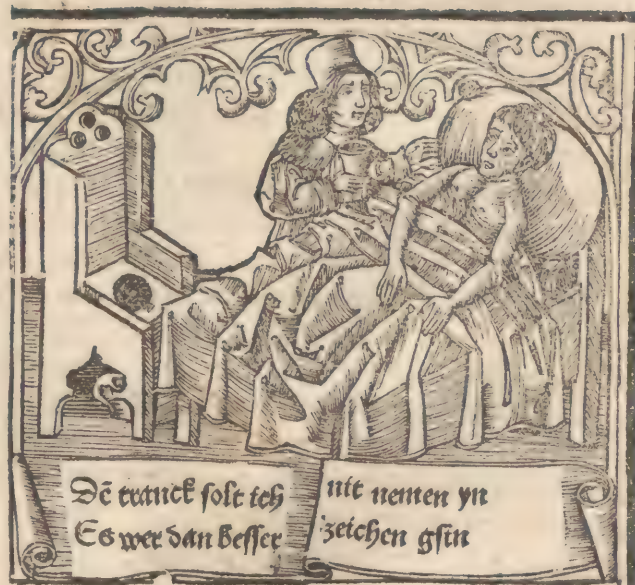 Dē tranck solt ich nit nemen yn
Es wer dan besser zeichen gsin